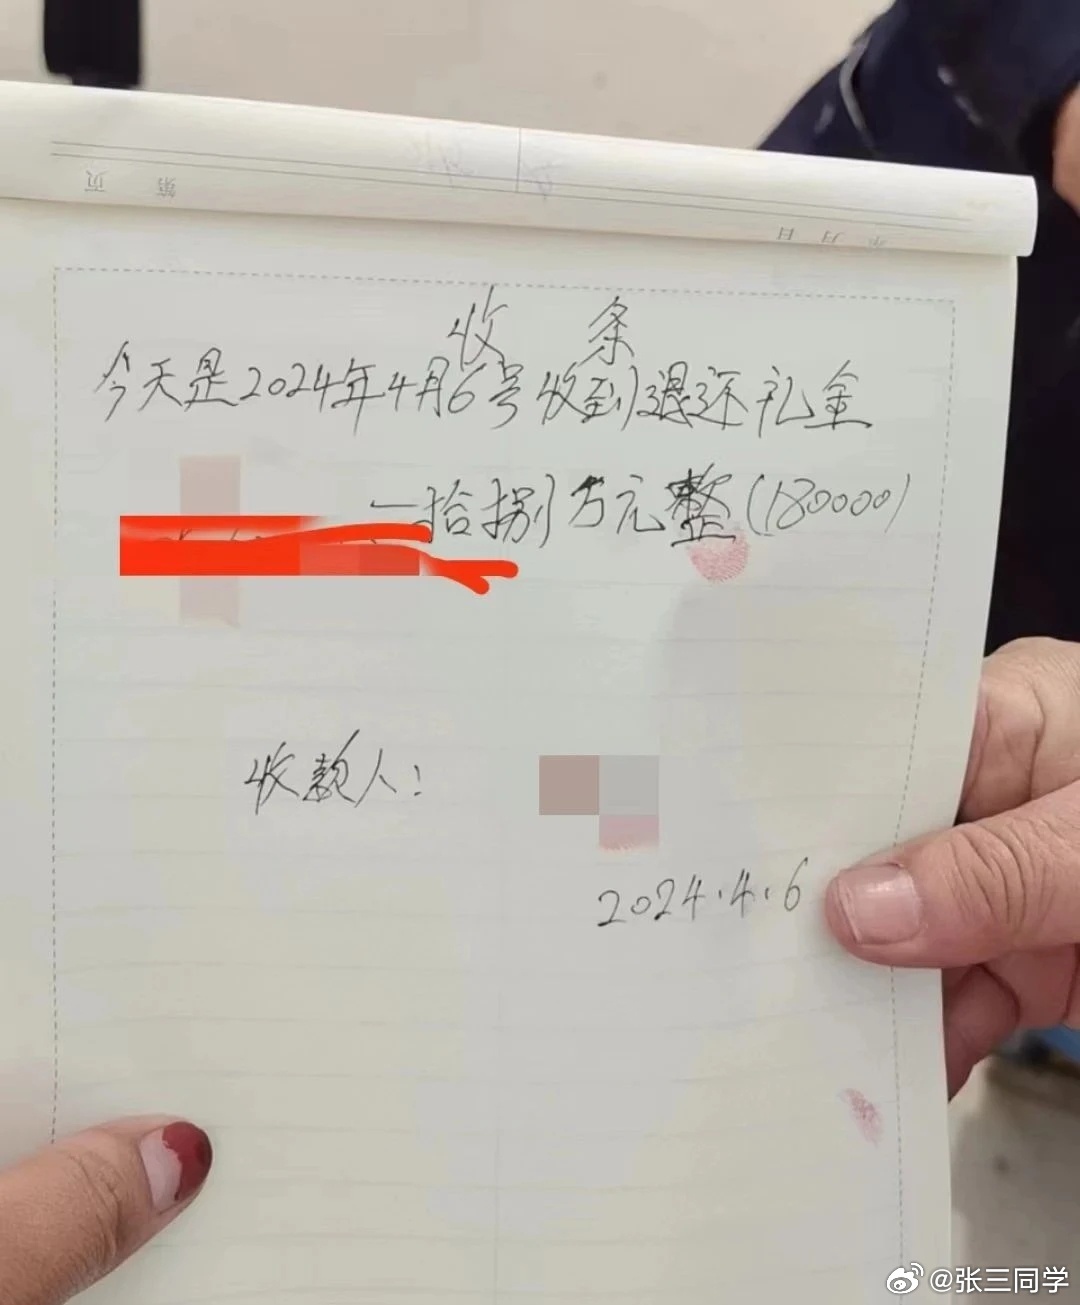 第 页
年 月 日
收 条
今天是2024年4月6号收到退还礼金
一拾捌万元整(180000)
收款人:
2024.4.6
@张三同学